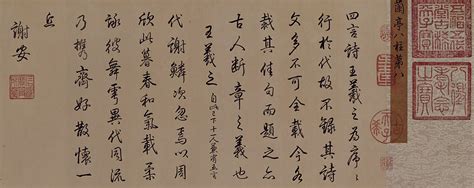 蘭亭八柱第八
四言詩王羲之為序々
行於代故不錄其詩
文多不可全載今各
裁其佳句而題之亦
古人斷章之義也
王羲之 自此已下十一人兼有五言
代謝鱗次忽焉以周
欣此暮春和氣載柔
詠彼舞雩異代同流
乃攜齊好散懷一
丘
謝安